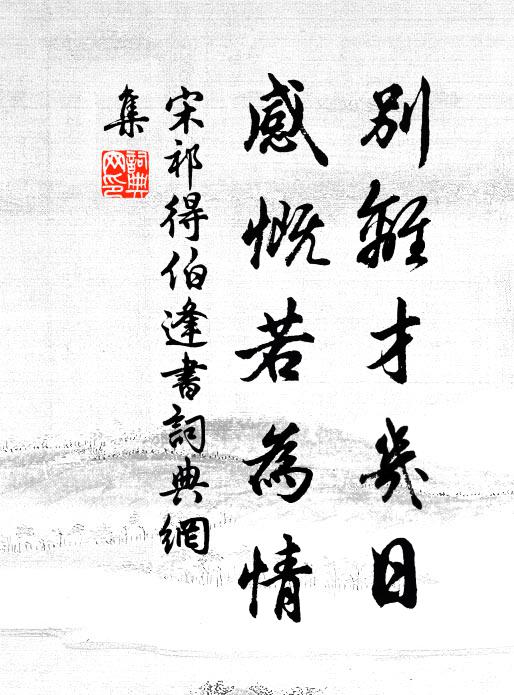 別離才幾日
感慨若為情
宋祁得伯逢書詞典網
集
詞典
网印